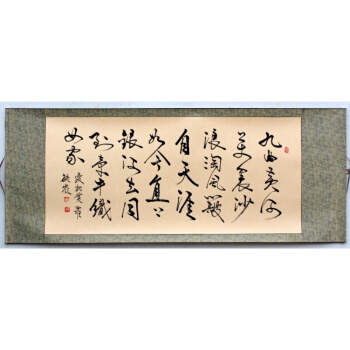 九曲黄河
万里沙
浪淘风簸
自天涯
如今直上
银河去同
到牵牛织
女家